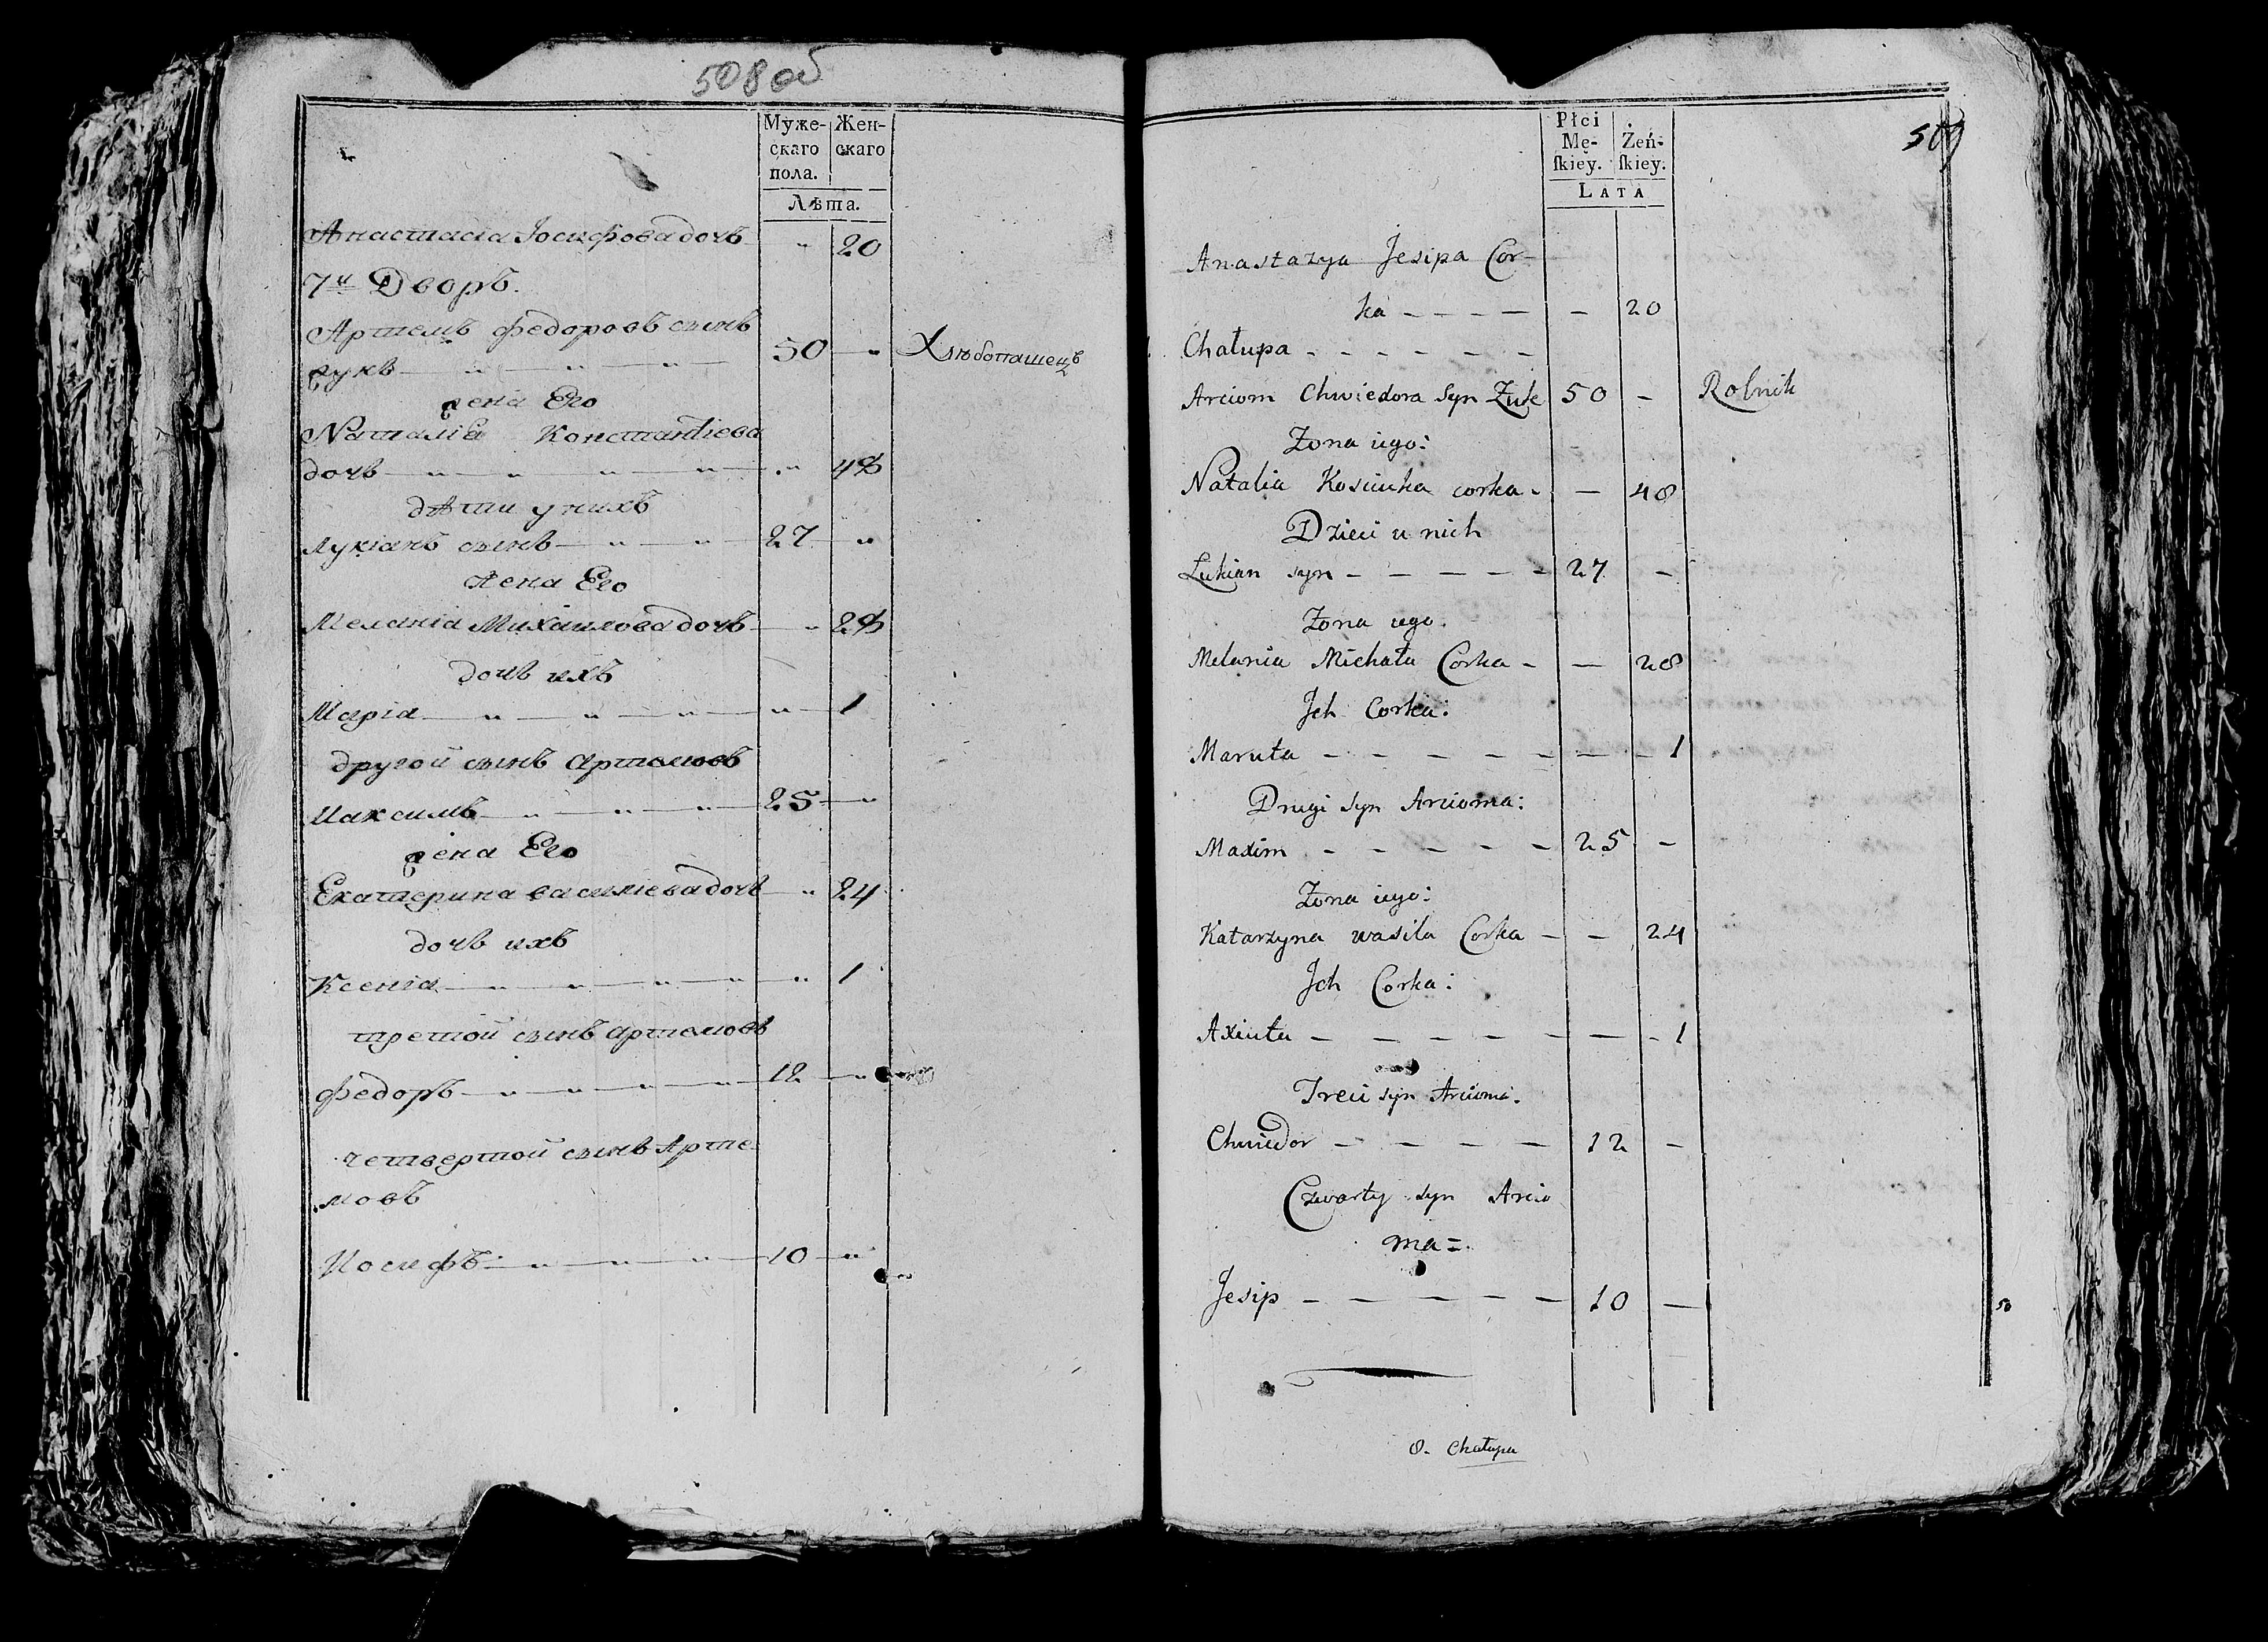 508 об
Муже-
скаго
пола.
Жен-
скаго
Лѣта.
Анастасіа Іосифова дочь " 20
7й Дворъ.
Артемъ Федоровъ сынъ
жукъ — " — " — " — 50 — " Хлѣбопашецъ
жена Его
Наталіа Константіева
дочь — " — " — " — " — " 48
дѣти у нихъ
Лукіанъ сынъ — " — " — 27 "
жена Его
Меланіа Михаилова дочь — " 28
дочь ихъ
Маріа — " — " — " — " — 1
другой сынъ Артемовъ
Максимъ — " — " — " — 25 — "
жена Его
Екатерина василіева дочь — " 24
дочь ихъ
Ксеніа — " — " — " — " — " 1
третой сынъ артемовъ
Федоръ — " — " — " — " — 12 — "
четвертой сынъ Арте-
мовъ
Иосифъ — " — " — " — 10 — "
509
Płci
Mę-
ſkiey.
Żeń-
ſkiey.
LATA
Anastazya Jesipa Cor-
ka - - - - - 20
Chałupa - - - - - -
Arciom Chwiedora Syn Żuk 50 - Rolnik
Żona iego:
Natalia Kosciuka corka - - 48
Dzieci u nich
Łukian syn - - - - - 27 -
Żona iego:
Melania Michała Corka - - 28
Jch Corka:
Maruta - - - - - - - 1
Drugi syn Arcioma:
Maxim - - - - - 25 -
Żona iego:
Katarzyna wasila Corka - - 24
Jch Corka:
Axiuta - - - - - - - 1
Treci syn Arcioma:
Chwiedor - - - - - 12 -
Czwarty syn Arcio
ma=
Jesip - - - - - - 10 -
8. Chałupa